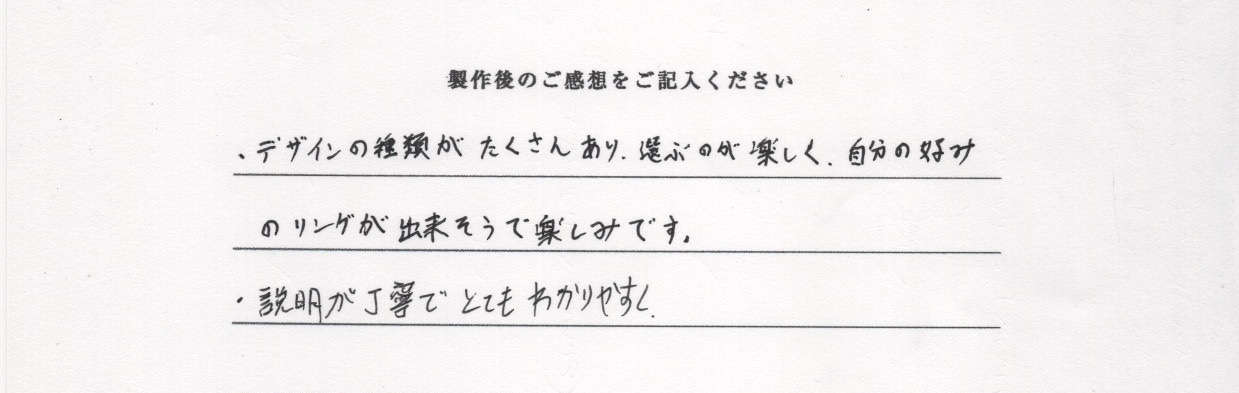 製作後のご感想をご記入ください
・デザインの種類がたくさんあり、選ぶのが楽しく、自分の好み
のリングが出来そうで楽しみです。
・説明が丁寧でとてもわかりやすく、